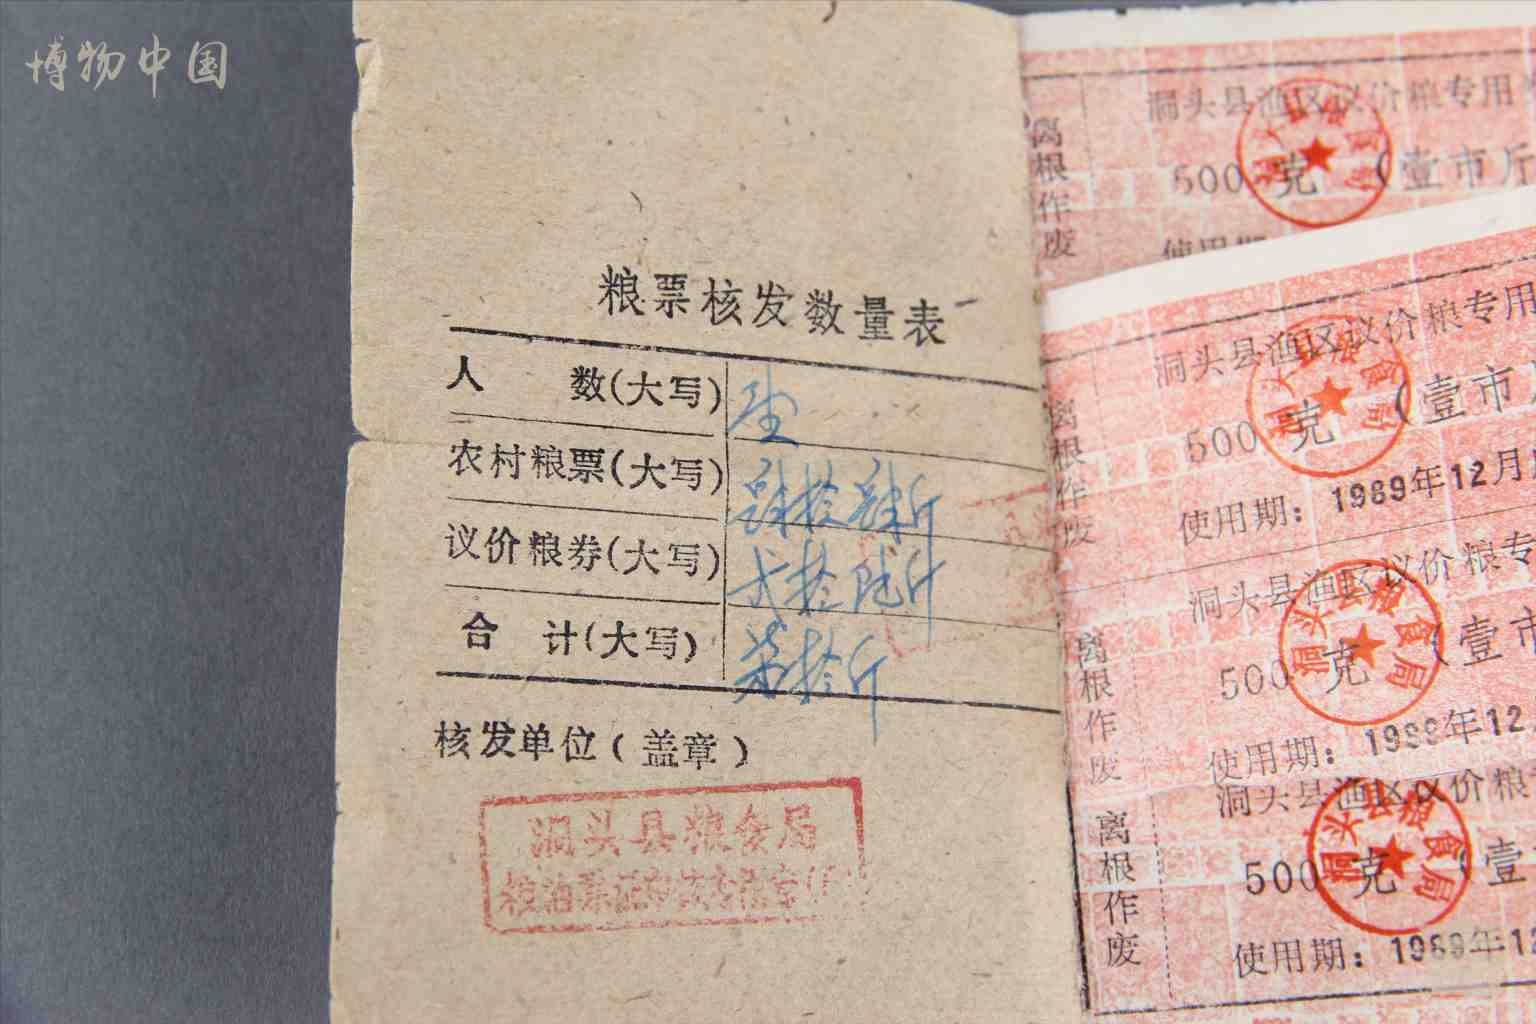 博物中国
粮票核发数量表
人 数(大写) 壹
农村粮票(大写) 肆拾肆斤
议价粮券(大写) 弍拾陆斤
合 计(大写) 柒拾斤
核发单位(盖章)
洞头县粮食局
洞头县渔区议价粮专用
离根作废
500 克 (壹市斤
使用期
洞头县渔区议价粮专用
离根作废
500 克 (壹市
使用期: 1989年12月
洞头县渔区议价粮专
离根作废
500 克 (壹市
使用期: 1989年12
洞头县渔区议价粮
离根作废
500 克 (壹
使用期: 1989年12
洞头县粮食局
洞头县粮食局
洞头县粮食局
洞头县粮食局